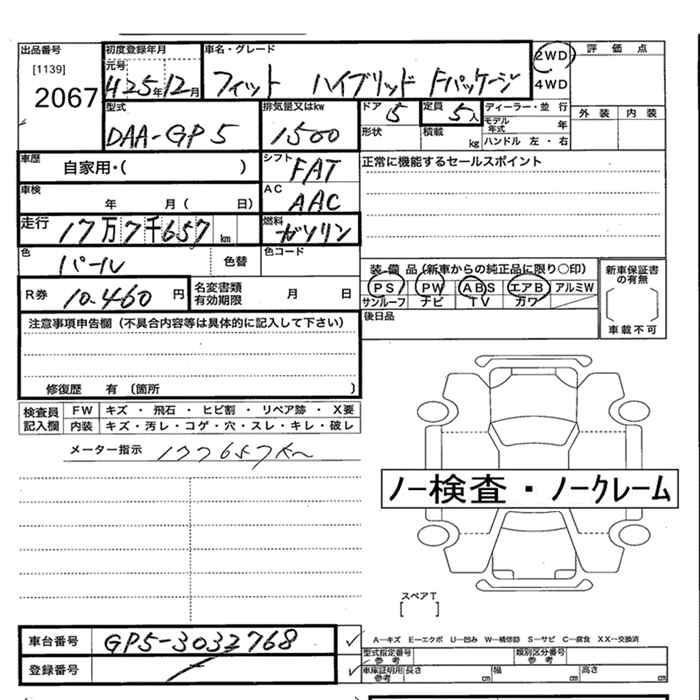 出品番号 初度登録年月 車名・グレード 2WD 評価点
[1139] 元号 4WD
2067 H25年12月 フィット ハイブリッド Fパッケージ
型式 排気量又はkw ドア 5 定員 5人 ディーラー・並 行 外装 内装
DAA-GP5 1500 形状 積載 kg モデル年式 年
ハンドル 左・右
車歴 自家用・( ) シフト FAT 正常に機能するセールスポイント
車検 年 月( 日) AC AAC
走行 17万7千657km 燃料 ガソリン
色 パール 色替 色コード
装備品(新車からの純正品に限り○印) 新車保証書の有無
R券 10.460円 名変書類有効期限 月 日 PS PW ABS エアB アルミW
サンルーフ ナビ TV カワ
注意事項申告欄(不具合内容等は具体的に記入して下さい) 後日品 車載不可
修復歴 有 (箇所 )
検査員記入欄 FW キズ・飛石・ヒビ割・リペア跡・X要
内装 キズ・汚レ・コゲ・穴・スレ・キレ・破レ
メーター指示 177657km
ノー検査・ノークレーム
スペアT
[ ]
車台番号 GP5-3032768 A—キズ E—エクボ U—凹み W—補修跡 S—サビ C—腐食 XX—交換済
型式指定番号 参考 類別区分番号 参考
登録番号 車庫証明用参考 長さ cm 幅 cm 高さ cm